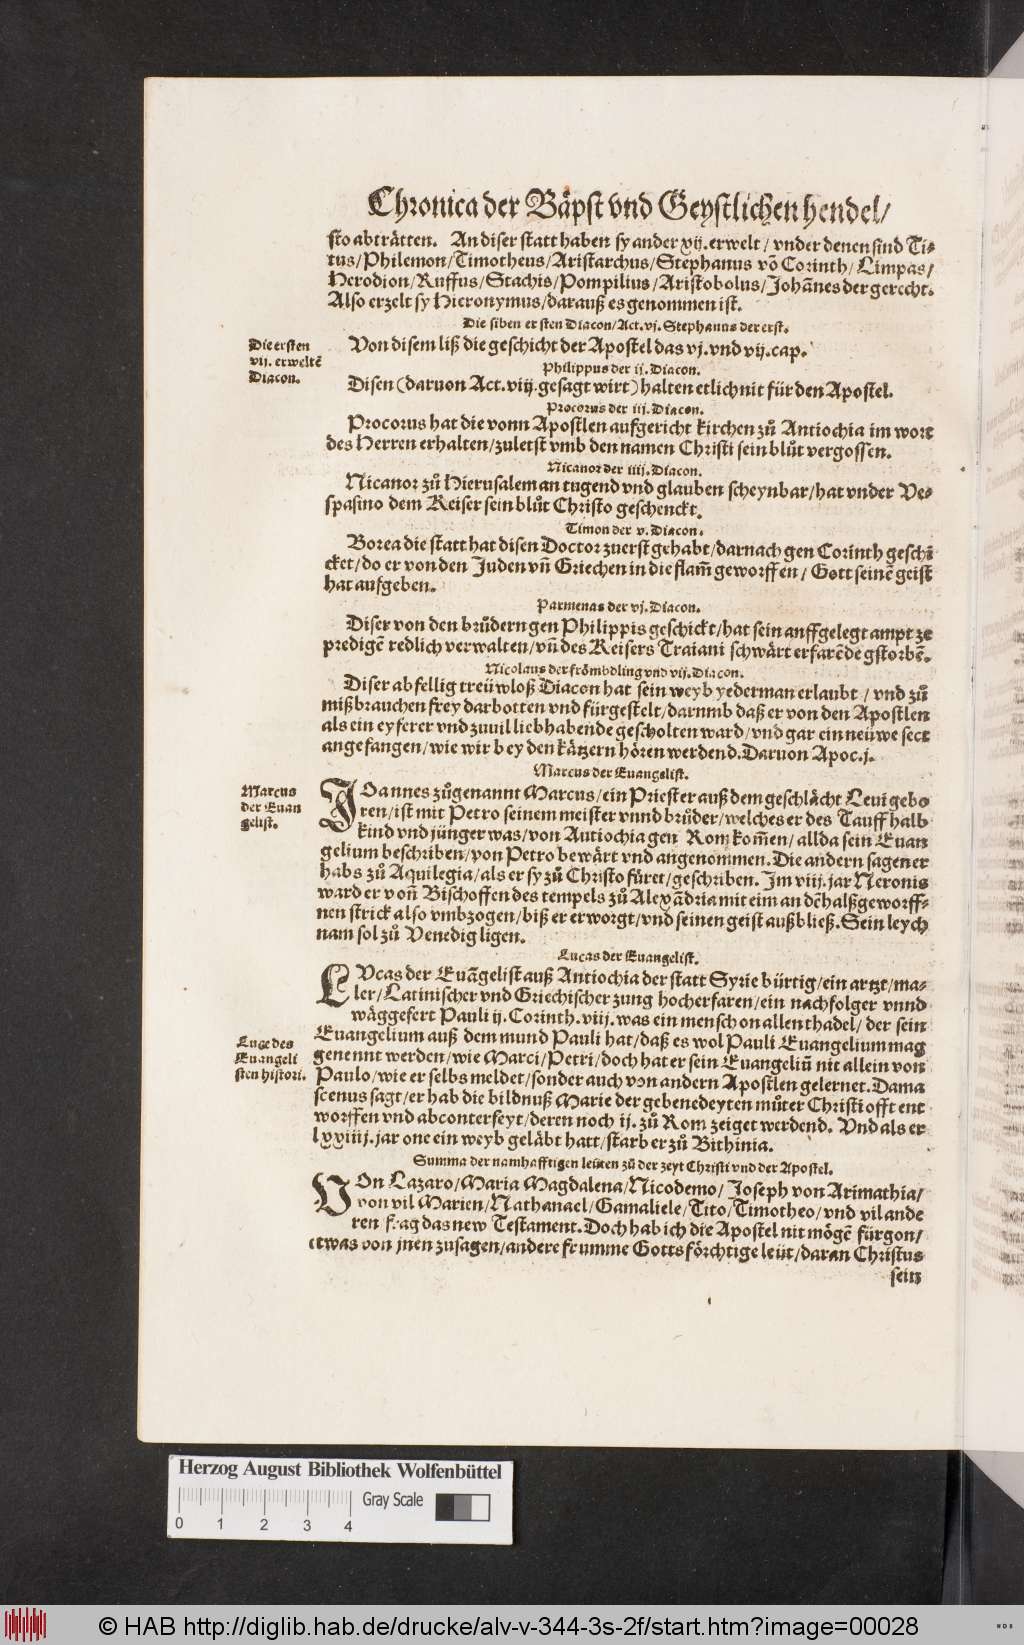 Chronica der Bäpst vnd Geystlichen hendel/
sto abträtten. An diser statt haben sy ander xij. erwelt/ vnder denen sind Ti-
tus/Philemon/Timotheus/Aristarchus/Stephanus vō Corinth/Limpas/
Herodion/Ruffus/Stachis/Pompilius/Aristobolus/Johānes der gerecht.
Also erzelt sy Hieronymus/darauß es genommen ist.
Die siben ersten Diacon/Act. vj. Stephanus der erst.
Die ersten
vij. erweltē
Diacon.
Von disem liß die geschicht der Apostel das vj. vnd vij. cap.
Philippus der ij. Diacon.
Disen (daruon Act. viij. gesagt wirt) halten etlich nit für den Apostel.
Procorus der iij. Diacon.
Procorus hat die vonn Apostlen aufgericht kirchen zů Antiochia im wort
des Herren erhalten/zuletst vmb den namen Christi sein blůt vergossen.
Nicanor der iiij. Diacon.
Nicanor zů Hierusalem an tugend vnd glauben scheynbar/hat vnder Ve-
spasino dem Keiser sein blůt Christo geschenckt.
Timon der v. Diacon.
Borea die statt hat disen Doctor zuerst gehabt/darnach gen Corinth geschi
cket/do er von den Juden vn̄ Griechen in die flam̄ geworffen/ Gott seinē geist
hat aufgeben.
Parmenas der vj. Diacon.
Diser von den brůdern gen Philippis geschickt/hat sein auffgelegt ampt ze
predigē redlich verwalten/vn̄ des Keisers Traiani schwärt erfarēde gstorbē.
Nicolaus der frömbdling vnd vij. Diacon.
Diser abfellig treüwloß Diacon hat sein weyb yederman erlaubt/ vnd zů
mißbrauchen frey darbotten vnd fürgestelt/darumb daß er von den Apostlen
als ein eyferer vnd zuuil liebhabende gescholten ward/vnd gar ein neüwe sect
angefangen/wie wir bey den kätzern hören werdend. Daruon Apoc. j.
Marcus der Euangelist.
Marcus
der Euan
gelist.
JOannes zůgenannt Marcus/ein Priester auß dem geschlächt Leui gebo
ren/ist mit Petro seinem meister vnnd brůder/welches er des Tauff halb
kind vnd jünger was/von Antiochia gen Rom kom̄en/allda sein Euan
gelium beschriben/von Petro bewärt vnd angenommen. Die andern sagen er
habs zů Aquilegia/als er sy zů Christo fůret/geschriben. Jm viij. jar Neronis
ward er von̄ Bischoffen des tempels zů Alexādria mit eim an dē halß geworff-
nen strick also vmbzogen/biß er erworgt/vnd seinen geist außbließ. Sein leych
nam sol zů Venedig ligen.
Lucas der Euangelist.
LVcas der Euāgelist auß Antiochia der statt Syrie bürtig/ein artzt/ma-
ler/Latinischer vnd Griechischer zung hocherfaren/ein nachfolger vnnd
wäggefert Pauli ij. Corinth. viij. was ein mensch on allen thadel/ der sein
Euangelium auß dem mund Pauli hat/daß es wol Pauli Euangelium mag
genennt werden/wie Marci/Petri/doch hat er sein Euangeliū nit allein von
Paulo/wie er selbs meldet/sonder auch von andern Apostlen gelernet. Dama
scenus sagt/er hab die bildnuß Marie der gebenedeyten můter Christi offt ent
worffen vnd abconterfeyt/deren noch ij. zů Rom zeiget werdend. Vnd als er
lxxiiij. jar one ein weyb geläbt hatt/starb er zů Bithinia.
Luce des
Euangeli
sten histori.
Summa der namhafftigen leüten zů der zeyt Christi vnd der Apostel.
VOn Lazaro/Maria Magdalena/Nicodemo/ Joseph von Arimathia/
von vil Marien/Nathanael/Gamaliele/Tito/Timotheo/vnd vil ande
ren frag das new Testament. Doch hab ich die Apostel nit mögē fürgon/
etwas von jnen zusagen/andere frumme Gottsförchtige leüt/daran Christus
sein
Herzog August Bibliothek Wolfenbüttel
0 1 2 3 4
Gray Scale
© HAB http://diglib.hab.de/drucke/alv-v-344-3s-2f/start.htm?image=00028